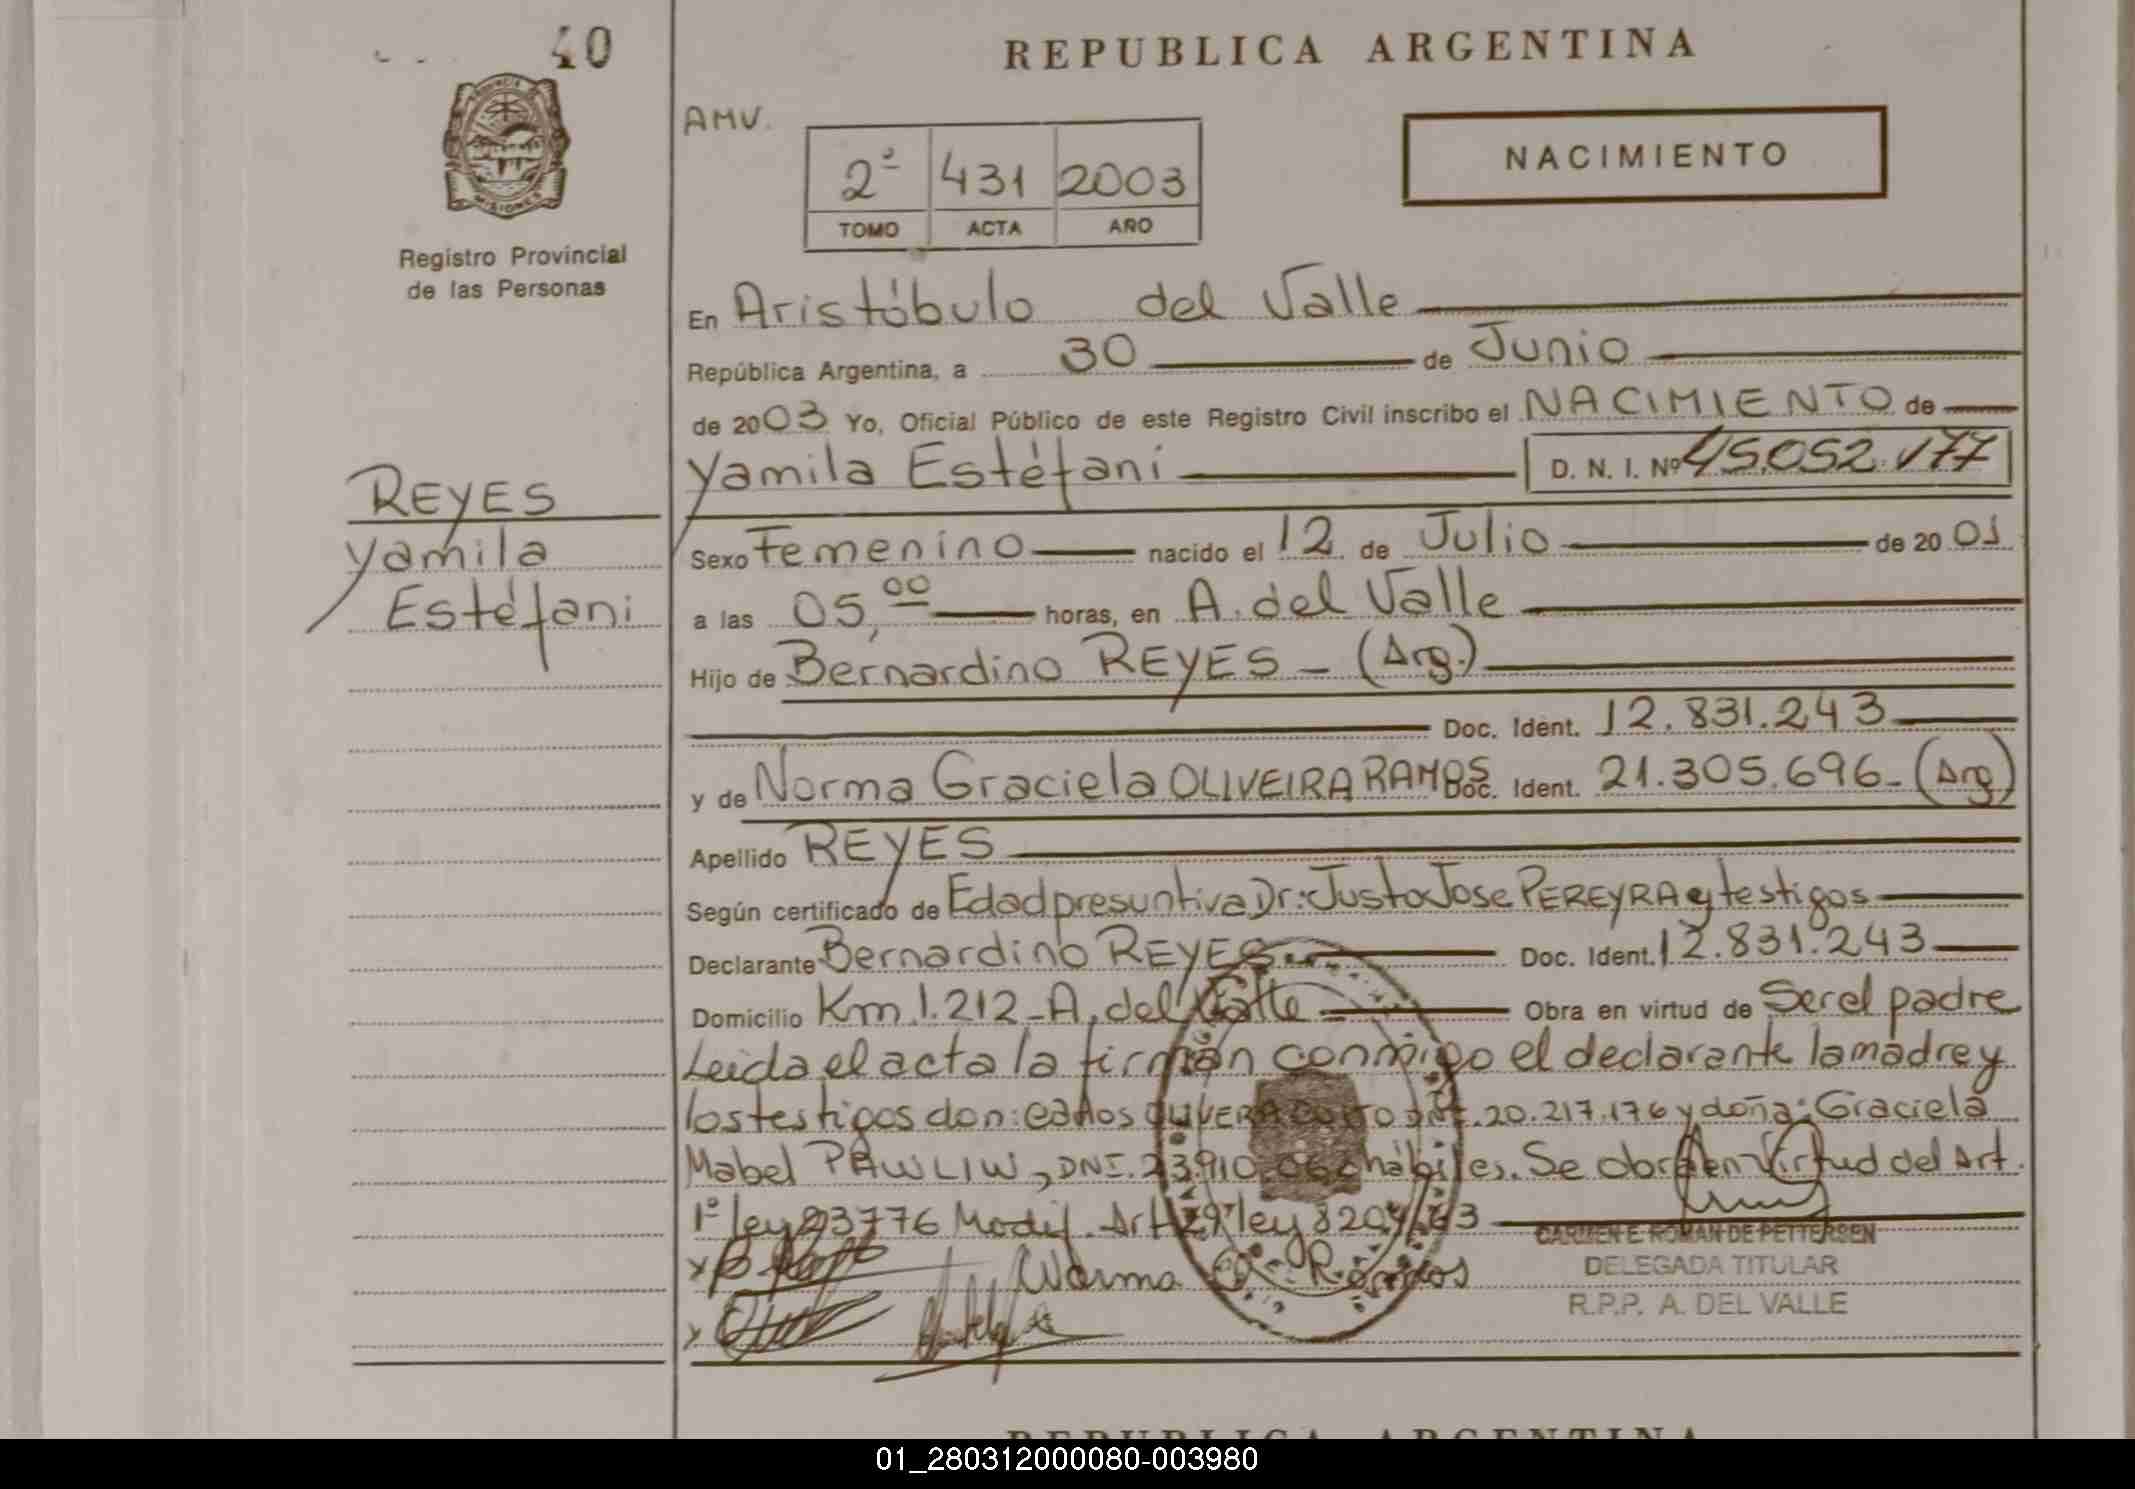 40
REPUBLICA ARGENTINA
AMV.
NACIMIENTO
2º 431 2003
TOMO ACTA AÑO
PROVINCIA
MISIONES
Registro Provincial
de las Personas
En Aristóbulo del Valle
República Argentina, a 30 de Junio
de 2003 Yo, Oficial Público de este Registro Civil inscribo el NACIMIENTO de
Yamila Estéfani D. N. I. Nº 45.052.177
REYES
Yamila
Estéfani
Sexo Femenino nacido el 12 de Julio de 20 01
a las 05,00 horas, en A. del Valle
Hijo de Bernardino REYES - (Arg.)
Doc. Ident. 12.831.243
y de Norma Graciela OLIVEIRA RAMOS Doc. Ident. 21.305.696- (Arg)
Apellido REYES
Según certificado de Edad presuntiva Dr: Justo Jose PEREYRA y testigos
Declarante Bernardino REYES Doc. Ident. 12.831.243
Domicilio Km 1.212 - A. del Valle Obra en virtud de Ser el padre
Leida el acta la firman conmigo el declarante la madre y
los testigos don: Carlos OLIVERA DNI. 20.217.176 y doña: Graciela
Mabel PAWLIW, DNI. 23.910.060 hábiles. Se obra en Virtud del Art.
1º ley 23776 Modif. Art 29 ley 8204/63
Norma Ramos
CARMEN E. ROMAN DE PETTERSEN
DELEGADA TITULAR
R.P.P. A. DEL VALLE
REPUBLICA ARGENTINA
01_280312000080-003980